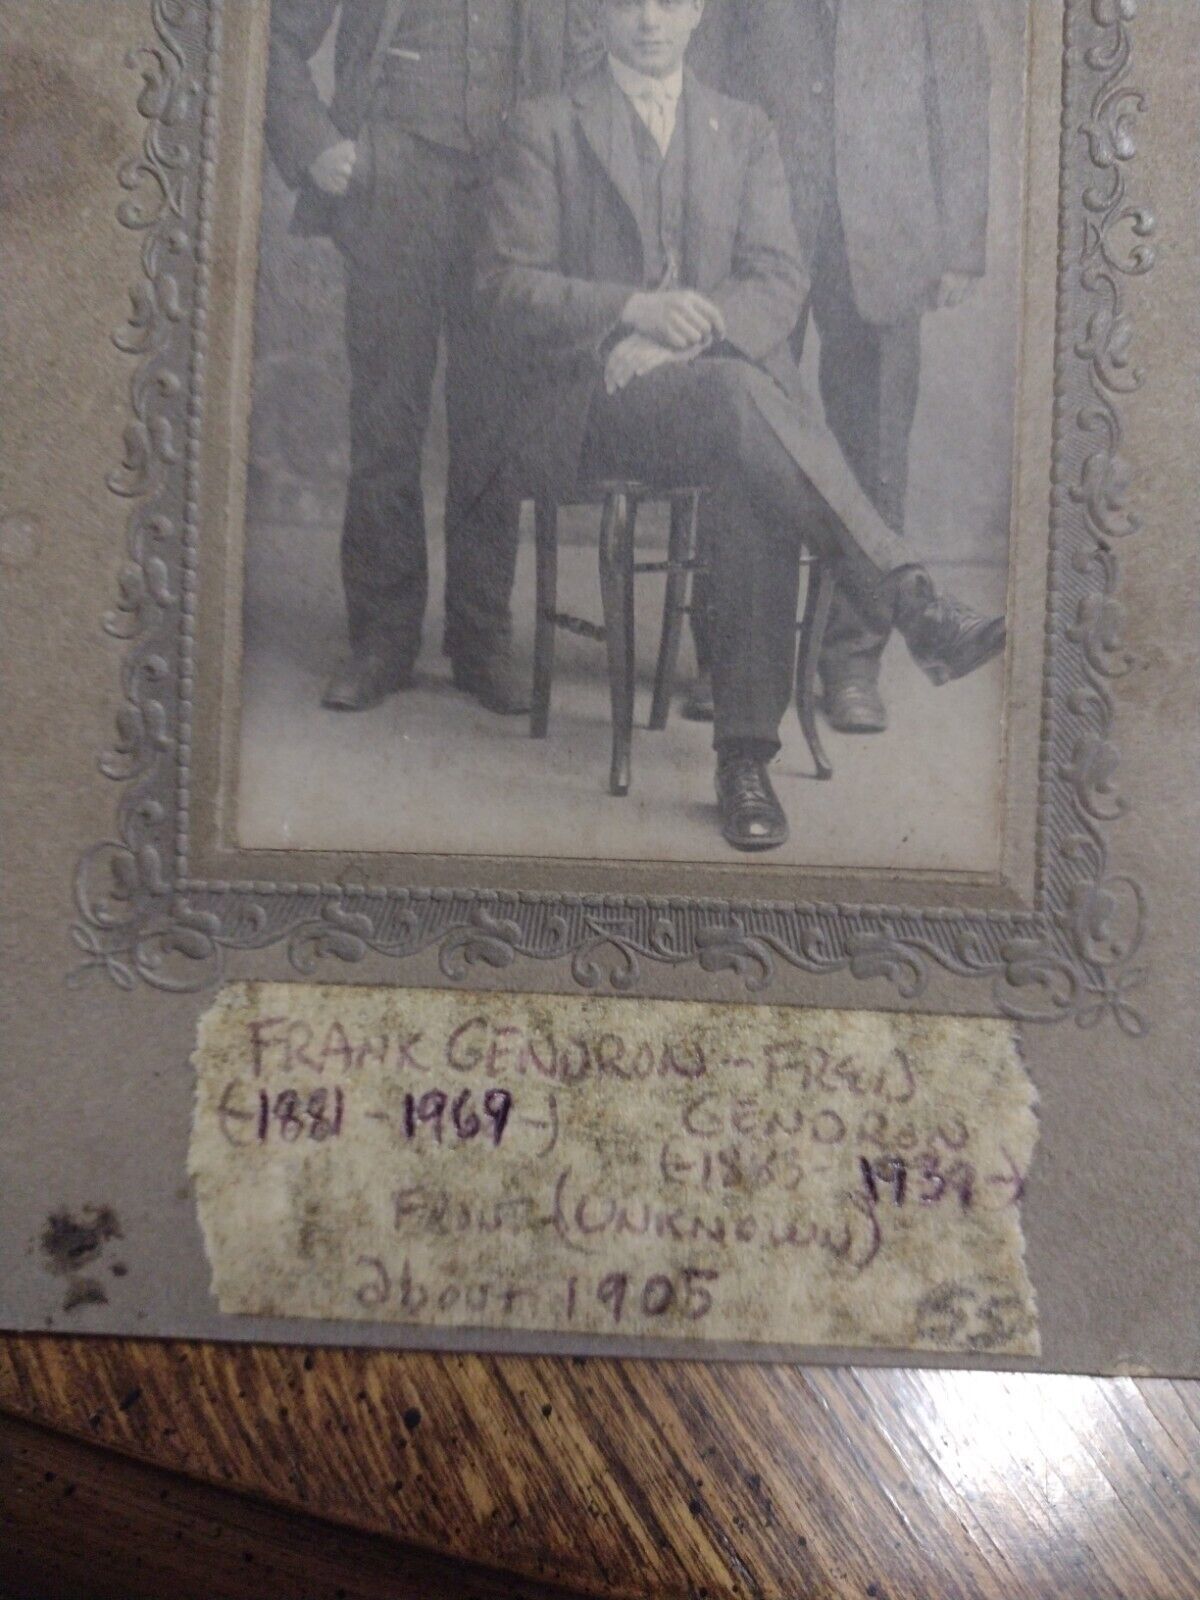 FRANK GENDRON -- FRED
(-1881 - 1969-) GENDRON
(-1883- 1939-)
FRONT - (UNKNOWN)
about 1905
55